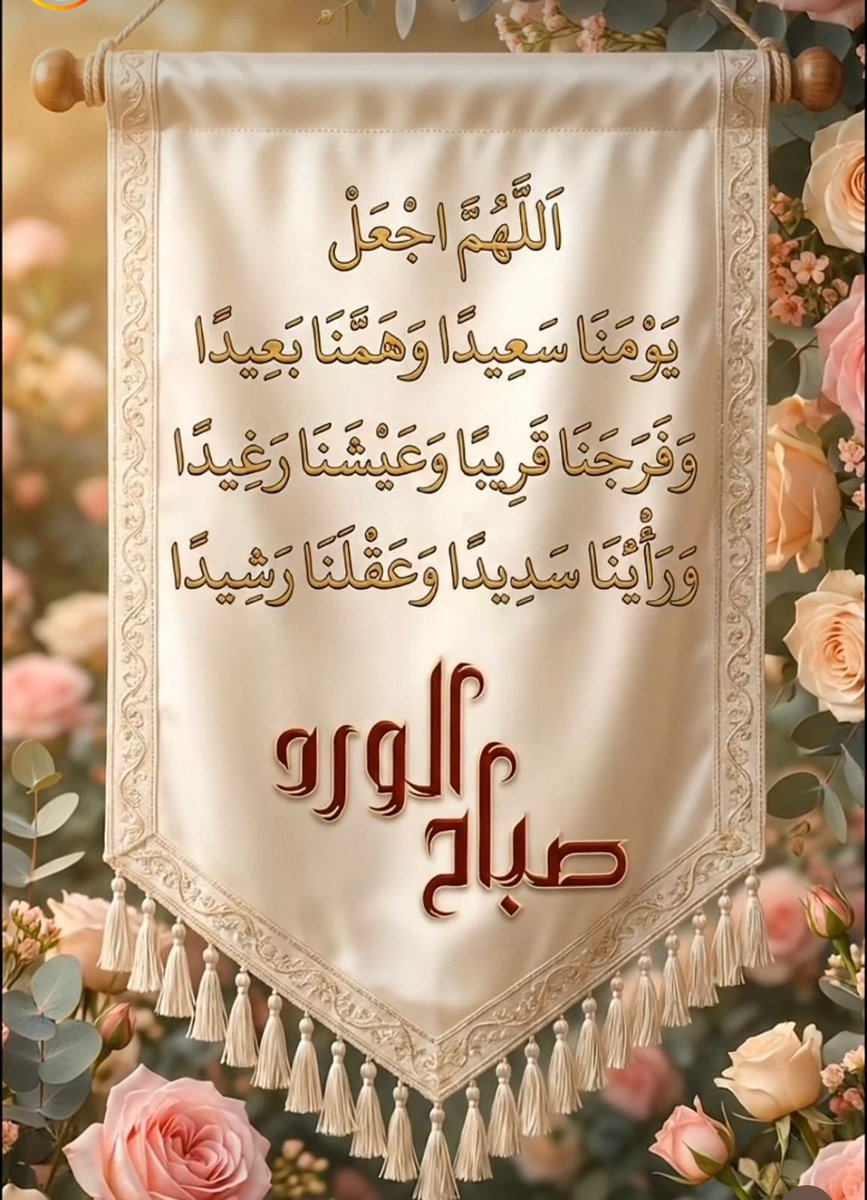 اَللَّهُمَّ اجْعَلْ
يَوْمَنَا سَعِيدًا وَهَمَّنَا بَعِيدًا
وَفَرَجَنَا قَرِيبًا وَعَيْشَنَا رَغِيدًا
وَرَأْيَنَا سَدِيدًا وَعَقْلَنَا رَشِيدًا
صباح الورد